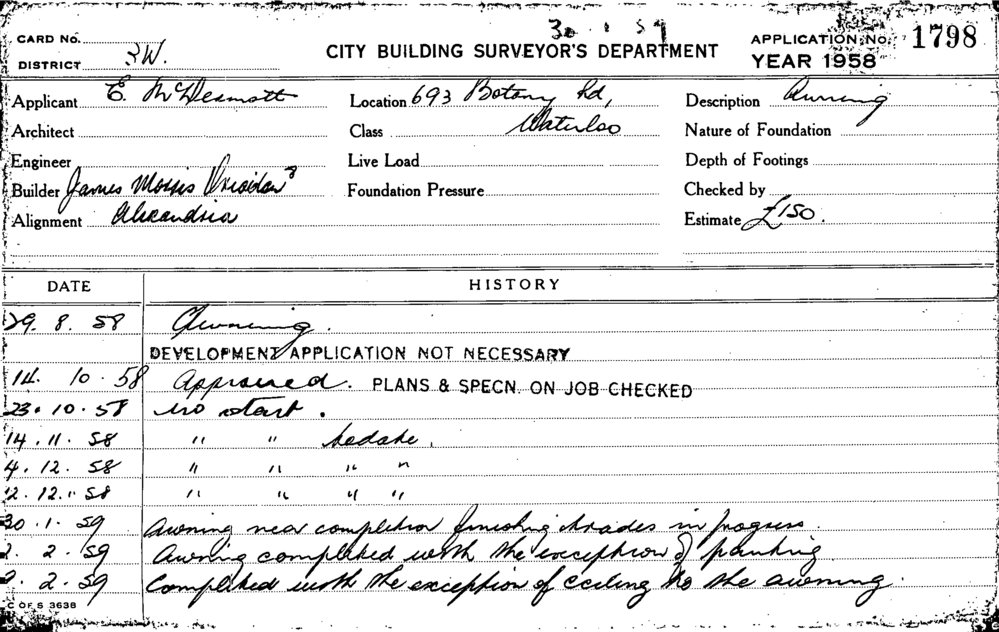 30 . 1 . 59
CARD No.
DISTRICT 3W.
CITY BUILDING SURVEYOR'S DEPARTMENT
APPLICATION No. 1798
YEAR 1958
Applicant E. McDermott
Location 693 Botany Rd,
Description Awning
Architect
Class Waterloo
Nature of Foundation
Engineer
Live Load
Depth of Footings
Builder James Morris
Foundation Pressure
Checked by
Alignment Alexandria
Estimate £150.
DATE HISTORY
29. 8. 58 Awning.
DEVELOPMENT APPLICATION NOT NECESSARY
14. 10. 58 Approved. PLANS & SPECN. ON JOB CHECKED
23. 10. 58 no start.
14. 11. 58 " " to date.
4. 12. 58 " " " "
2. 12. 58 " " " "
30. 1. 59 Awning near completion finishing trades in progress.
2. 2. 59 Awning completed with the exception of painting
2. 59 Completed with the exception of ceiling to the awning.
C OF S 3638